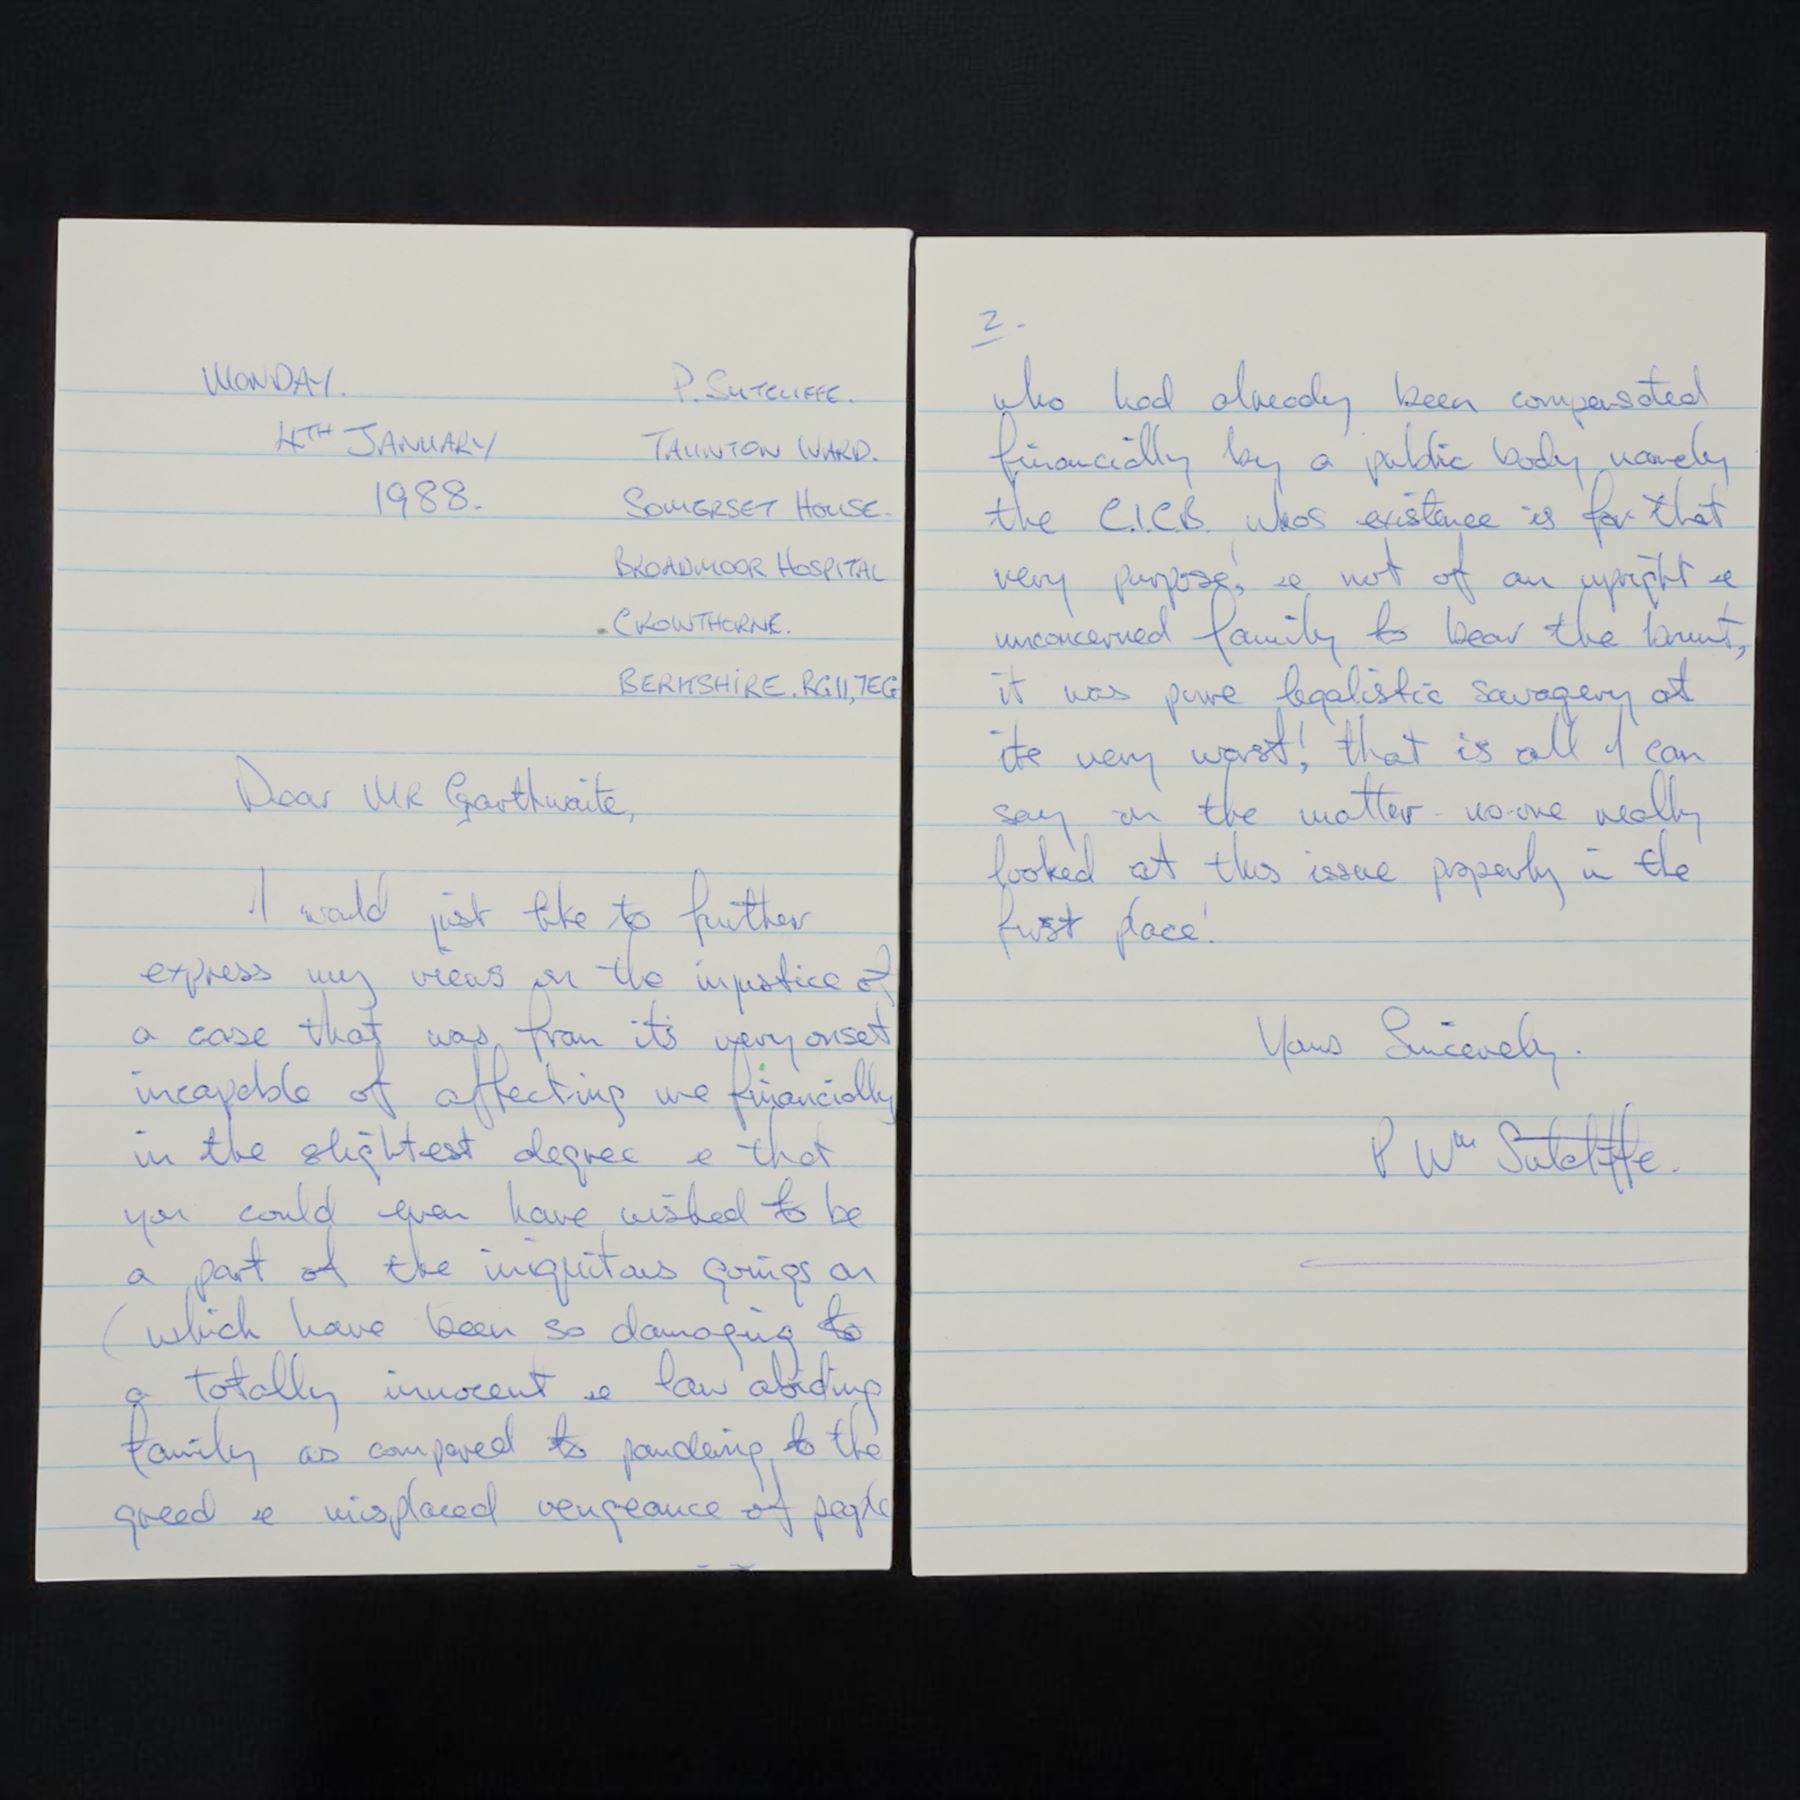 MONDAY.
4TH JANUARY
1988.
P. SUTCLIFFE.
TAUNTON WARD.
SOMERSET HOUSE.
BROADMOOR HOSPITAL
CROWTHORNE.
BERKSHIRE. RG11,7EG
Dear MR Garthwaite,
I would just like to further
express my views on the injustice of
a case that was from it's very onset
incapable of affecting me financially
in the slightest degree & that
you could even have wished to be
a part of the iniquitous goings on
(which have been so damaging to
a totally innocent & law abiding
family as compared to pandering to the
greed & misplaced vengeance of people
2.
who had already been compensated
financially by a public body namely
the C.I.C.B. whos existence is for that
very purpose! & not of an upright &
unconcerned family to bear the brunt,
it was pure legalistic savagery at
its very worst! that is all I can
say on the matter - no-one really
looked at this issue properly in the
first place!
Yours Sincerely.
P Wm Sutcliffe.